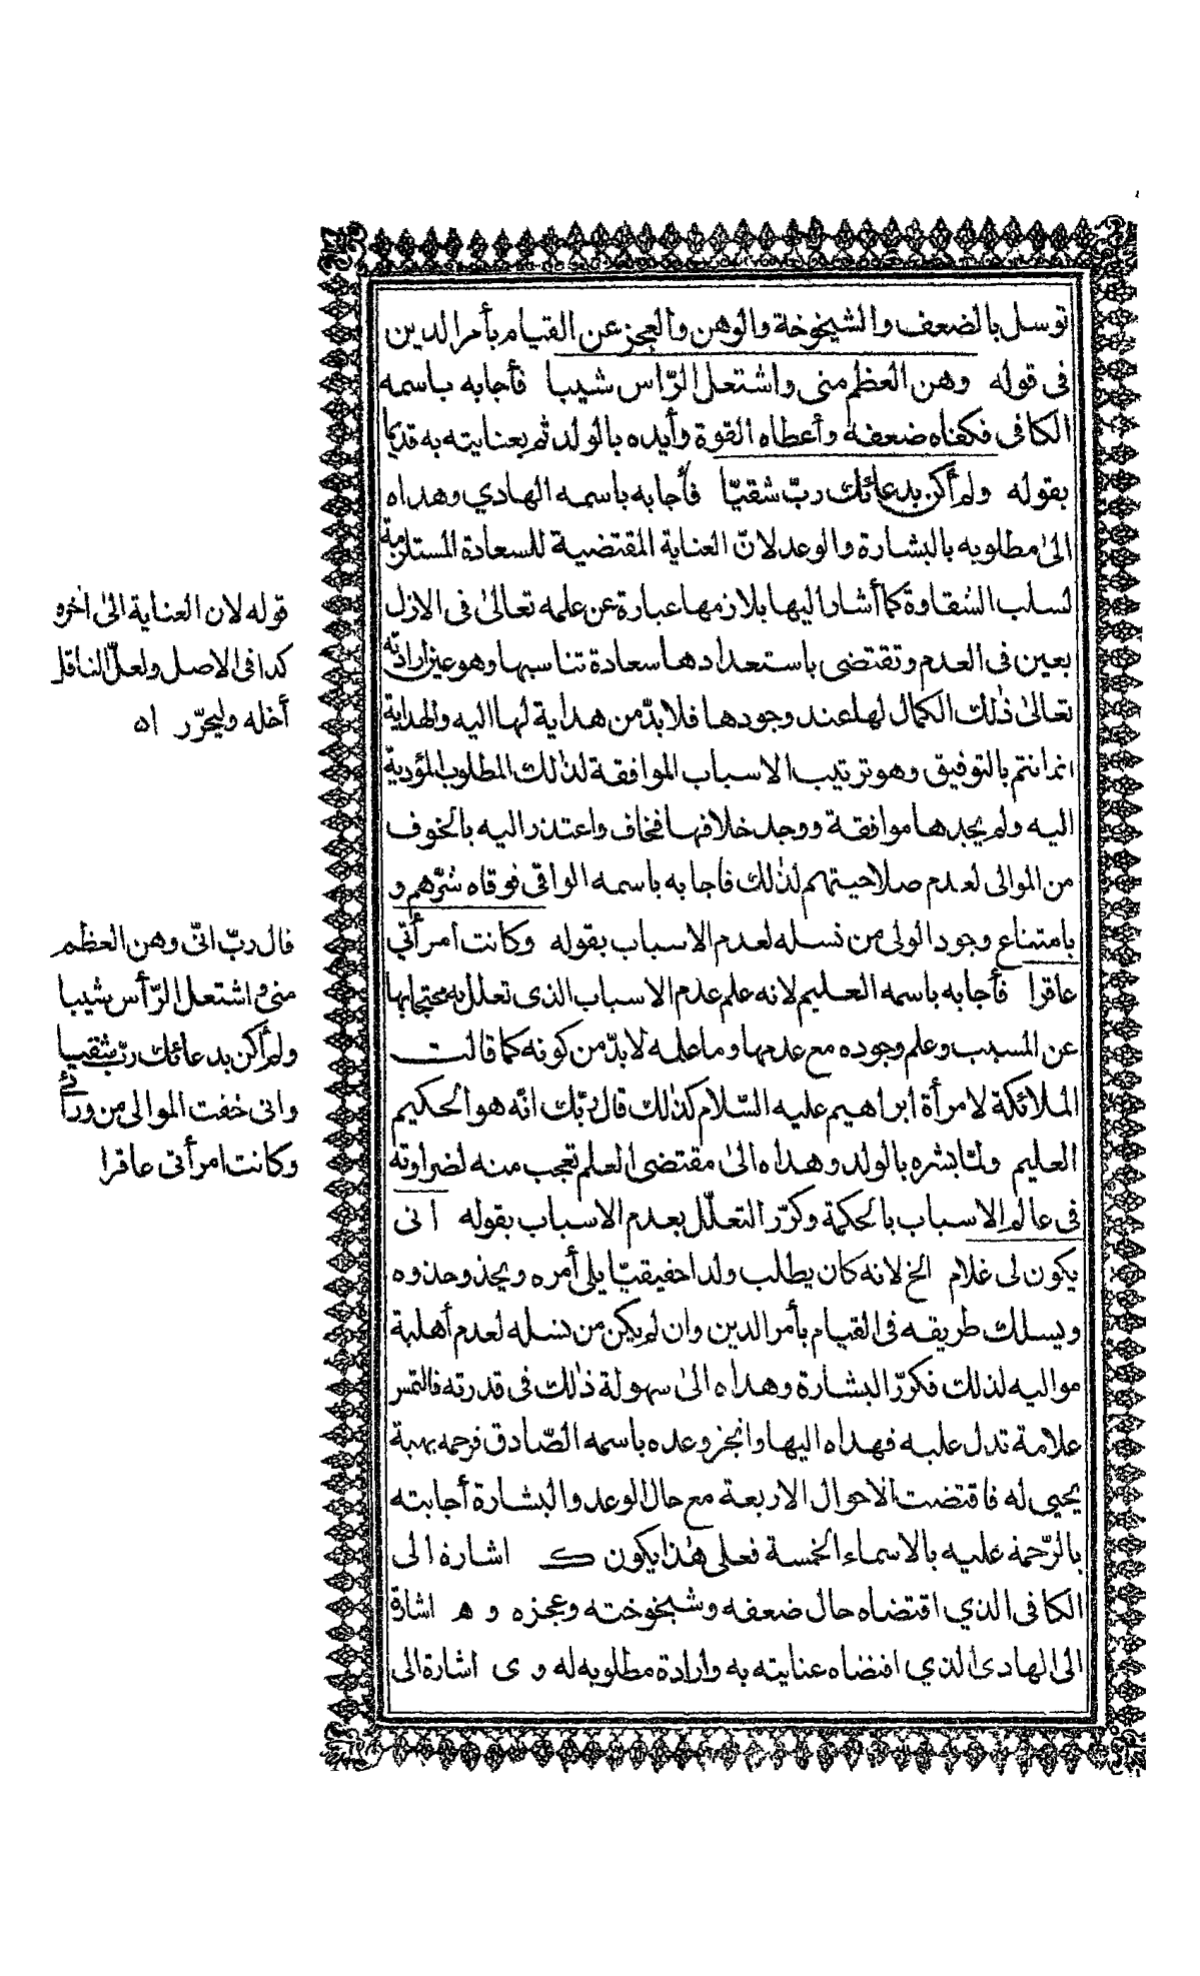 توسل بالضعف والشيخوخة والوهن والعجز عن القيام بأمر الدين
فى قوله وهن العظم منى واشتعل الرّاس شيبا فأجابه باسمه
الكافى فكفاه ضعفه وأعطاه القوة وأيده بالولد ثم بعنايته به قديما
بقوله ولم أكن بدعائك ربّ شقيّا فأجابه باسمه الهادي وهداه
الى مطلوبه بالبشارة والوعد لانّ العناية المقتضية للسعادة المستلزمة
لسلب الشقاوة كما أشار اليها بلازمها عبارة عن علمه تعالىٰ فى الازل
بعين فى العدم وتقتضى باستعدادها سعادة تناسبها وهو عين ارادته
تعالىٰ ذٰلك الكمال لها عند وجودها فلابدّ من هداية لها اليه والهداية
انما تتم بالتوفيق وهو ترتيب الاسباب الموافقة لذلك المطلوب المؤدية
اليه ولم يجدها موافقة ووجد خلافها فخاف واعتذر اليه بالخوف
من الموالى لعدم صلاحيتهم لذٰلك فاجابه باسمه الواقى فوقاه شرّهم و
بامتناع وجود الولى من نسله لعدم الاسباب بقوله وكانت امرأتى
عاقرا فأجابه باسمه العليم لانه علم عدم الاسباب الذى تعلل به محتجابها
عن المسبب وعلم وجوده مع عدمها وما علمه لابدّ من كونه كما قالت
الملائكة لامرأة ابراهيم عليه السّلام كذٰلك قال ربّك انّه هو الحكيم
العليم ولمّا بشره بالولد وهداه الىٰ مقتضى العلم تعجب منه لضراوته
فى عالم الاسباب بالحكمة وكرّر التعلّل بعدم الاسباب بقوله أنى
يكون لى غلام الخ لانه كان يطلب ولدا حقيقيّا يلى أمره ويحذو حذوه
ويسلك طريقه فى القيام بأمر الدين وان لم يكن من نسله لعدم أهلية
مواليه لذلك فكرّر البشارة وهداه الىٰ سهولة ذٰلك فى قدرته فالتمس
علامة تدل عليه فهداه اليها وانجز وعده باسمه الصّادق فرحمه بهبة
يحيى له فاقتضت الاحوال الاربعة مع حال الوعد والبشارة أجابته
بالرّحمة عليه بالاسماء الخمسة فعلى هٰذا يكون ك اشارة الى
الكافى الذي اقتضاه حال ضعفه وشيخوخته وعجزه و ه اشارة
الى الهادى الذي اقتضاه عنايته به وارادة مطلوبه له و ى اشارة الى
قوله لان العناية الىٰ اخره
كذا فى الاصل ولعلّ الناقل
أخله وليحرّر اه
قال ربّ انّى وهن العظم
منى واشتعل الرّأس شيبا
ولم أكن بدعائك ربّ شقيا
وانى خفت الموالى من ورائى
وكانت امرأتى عاقرا